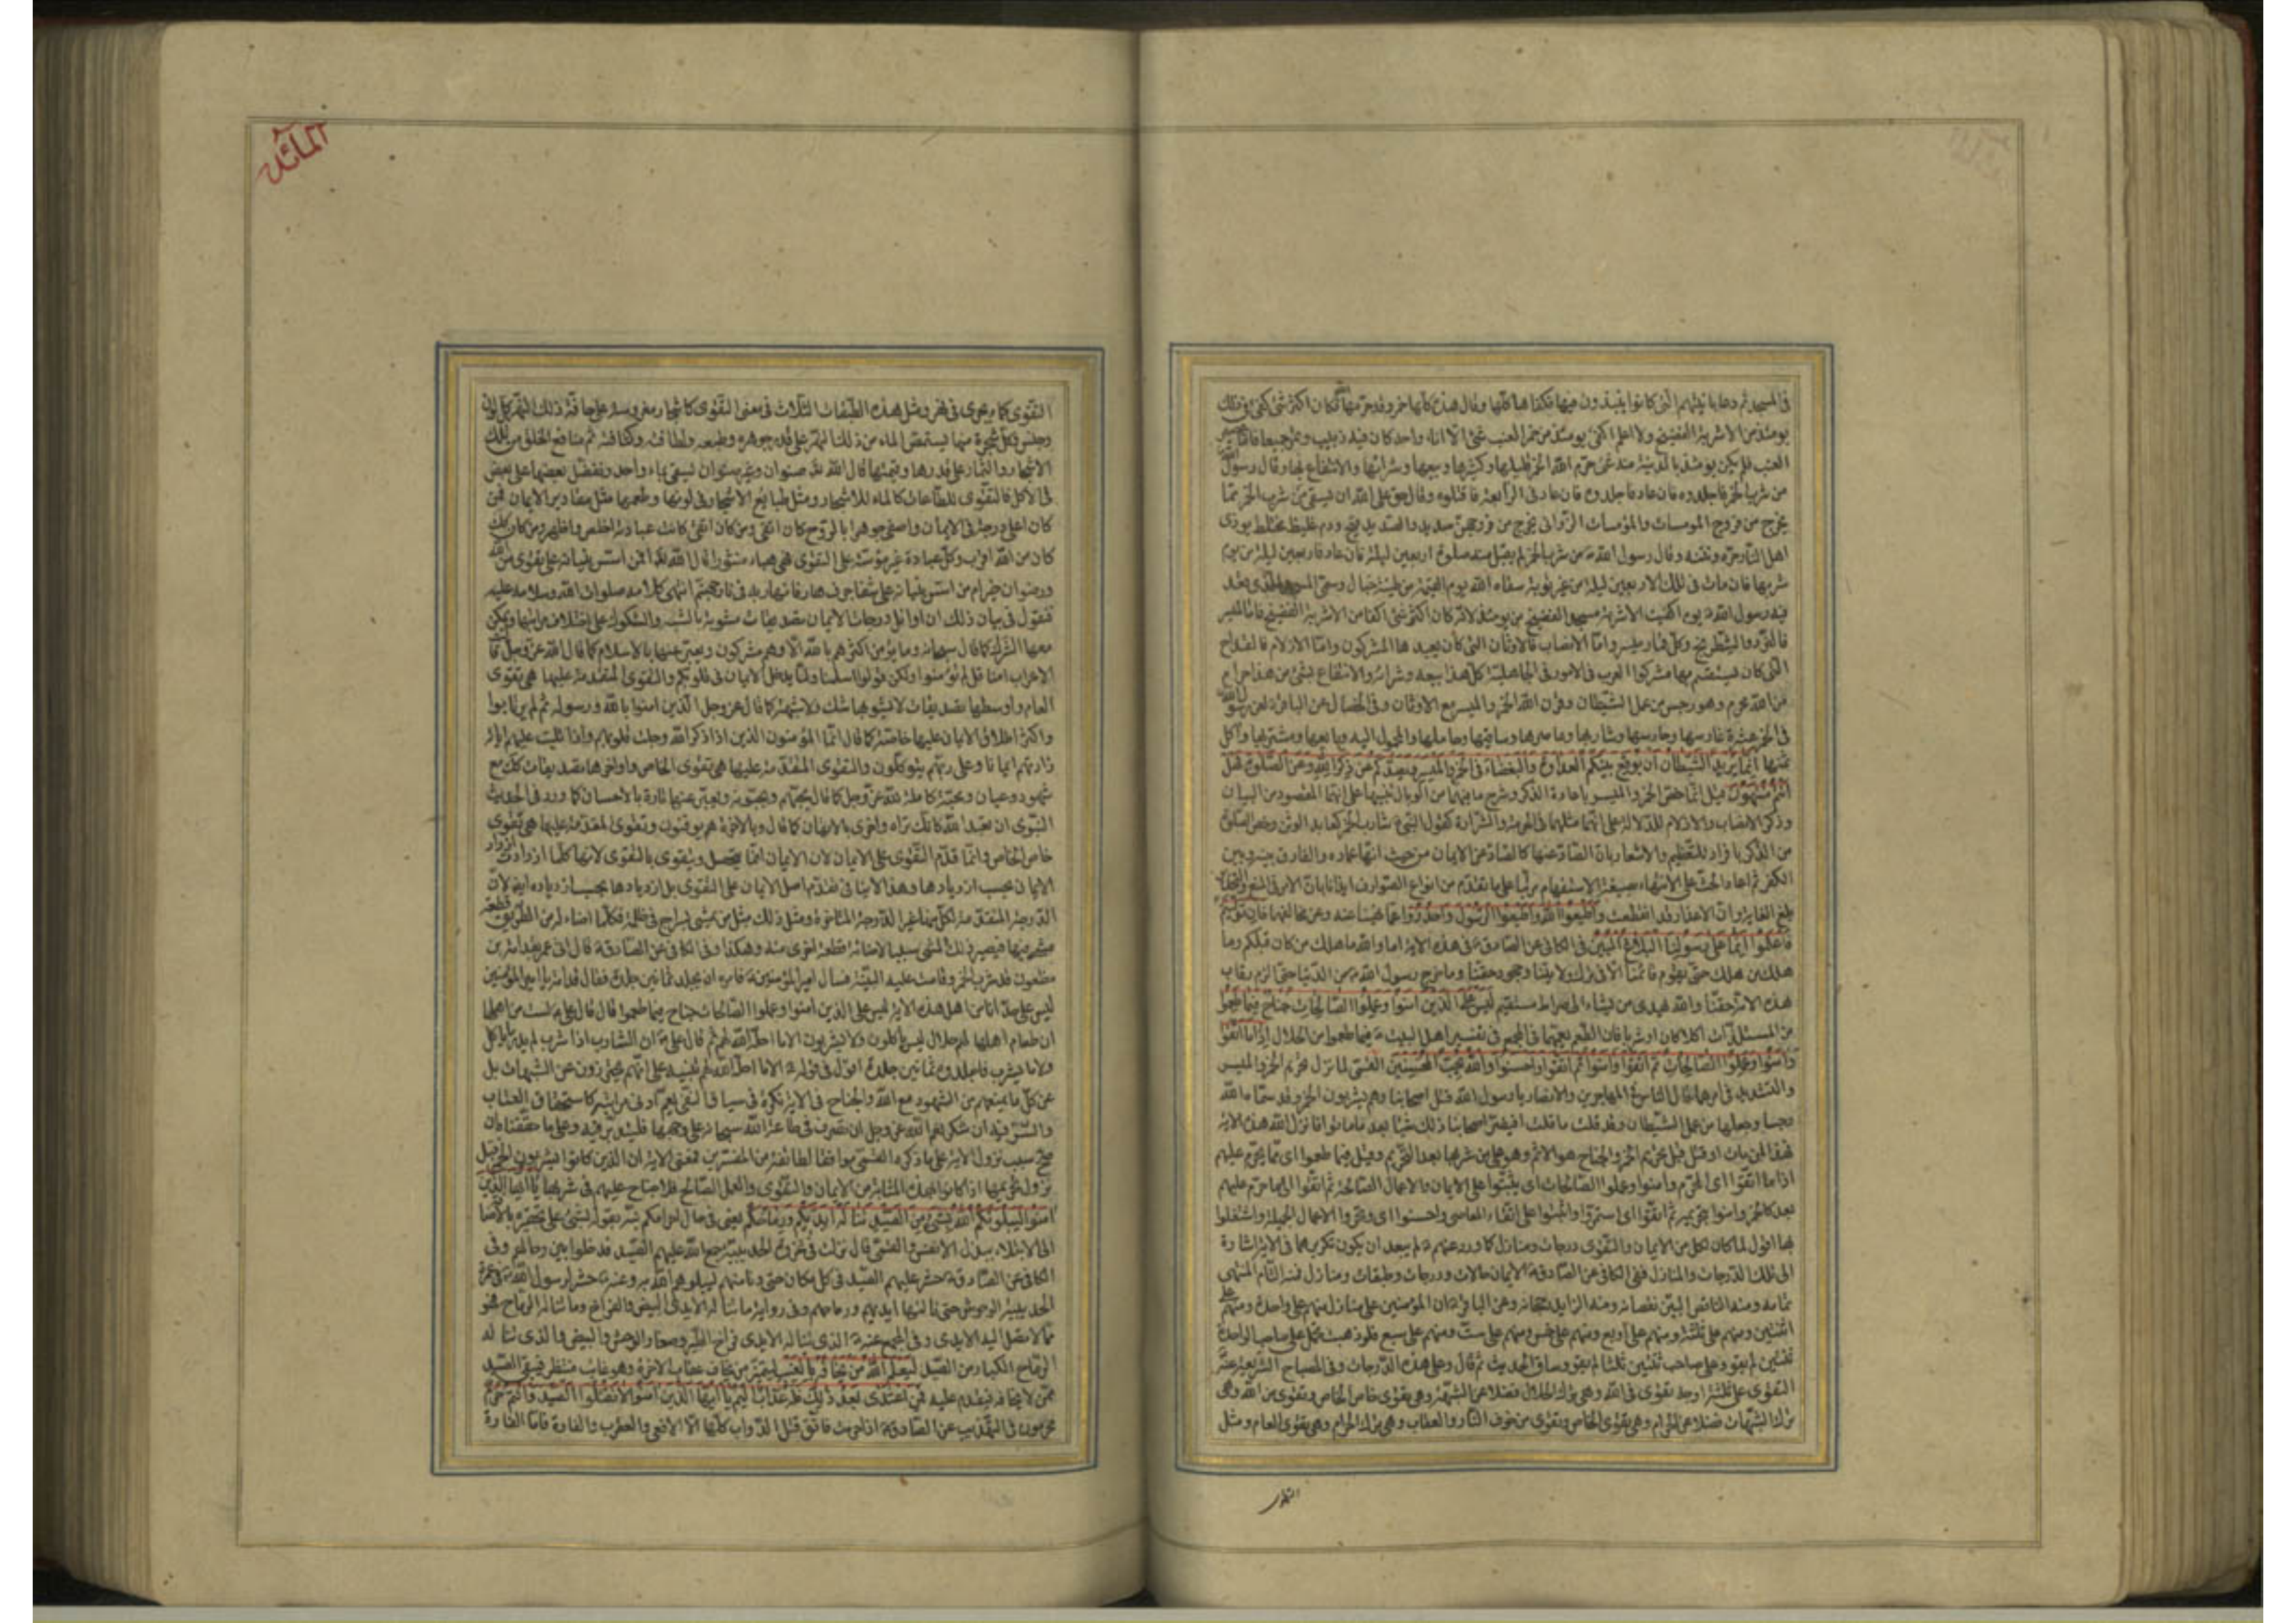 فی المسجد ثم دعا بآنیتهم التی کانوا ینبذون فیها فکفاها کلها وقال هذه کلها خمر وقد حرمها الله فکان اکثر شئ کفئ فی ذلک
یومئذ من الاشربة الفضیخ ولا اعلم اکفئ یومئذ من خمر العنب شئ الا اناء واحد کان فیه زبیب وتمر جمیعا فاما عصیر
العنب فلم یکن یومئذ بالمدینة منه شئ حرم الله الخمر قلیلها وکثیرها وبیعها وشرائها والانتفاع بها وقال رسول الله
من شرب الخمر فاجلدوه فان عاد فاجلدوه فان عاد فی الرابعة فاقتلوه وقال حق علی الله ان یسقی من شرب الخمر مما
یخرج من فروج المومسات والمومسات الزوانی یخرج من فروجهن صدید والصدید قیح ودم غلیظ مختلط یوذی
اهل النار حره ونتنه وقال رسول الله ص من شرب الخمر لم یقبل منه صلوة اربعین لیلة فان عاد فاربعین لیلة من یوم
شربها فان مات فی تلک الاربعین لیلة من غیر توبة سقاه الله یوم القیمة من طینة خبال وسمی المسجد الذی قعد
فیه رسول الله ص یوم اکفئت الاشربة مسجد الفضیخ من یومئذ لانه کان اکثر شئ اکفئ من الاشربة الفضیخ فاما المیسر
فالنرد والشطرنج وکل قمار میسر واما الانصاب فالاوثان التی کان یعبدها المشرکون واما الازلام فالقداح
التی کان یستقسم بها مشرکوا العرب فی الامور فی الجاهلیة کل هذا بیعه وشرائه والانتفاع بشئ من هذا حرام
من الله محرم وهو رجس من عمل الشیطان وقرن الله الخمر والمیسر مع الاوثان وفی الخصال عن الباقر ع لعن رسول الله
فی الخمر عشرة غارسها وحارسها وشاربها وعاصرها وساقیها وحاملها والمحمول الیه وبایعها ومشتریها وآکل
ثمنها انما یرید الشیطان ان یوقع بینکم العداوة والبغضاء فی الخمر والمیسر ویصدکم عن ذکر الله وعن الصلوة فهل
انتم منتهون قیل انما خص الخمر والمیسر باعادة الذکر وشرح ما فیهما من الوبال تنبیها علی انهما المقصود من البیان
وذکر الانصاب والازلام للدلالة علی انهما مثلهما فی الحرمة والشرارة کقول النبی ص شارب الخمر کعابد الوثن وخص الصلوة
من الذکر بالافراد للتعظیم والاشعار بان الصاد عنها کالصاد عن الایمان من حیث انها عماده والفارق بینه وبین
الکفر ثم اعاد الحث علی الانتهاء بصیغة الاستفهام مرتبا علی ما تقدم من انواع الصوارف ایذانا بان الامر فی المنع والتحذیر
بلغ الغایة وان الاعذار قد انقطعت واطیعوا الله واطیعوا الرسول واحذروا عما نهیا عنه وعن مخالفتهما فان تولیتم
فاعلموا انما علی رسولنا البلاغ المبین فی الکافی عن الصادق ع فی هذه الایة اما والله ما هلک من کان قبلکم وما
هلک من هلک حتی یقوم قائمنا الا فی ترک ولایتنا وجحود حقنا وما خرج رسول الله ص من الدنیا حتی الزم رقاب
هذه الامة حقنا والله یهدی من یشاء الی صراط مستقیم لیس علی الذین امنوا وعملوا الصالحات جناح فیما طعموا
من المستلذات اکلا کان او شربا فان الطعم یعمهما فی المجمع فی تفسیر اهل البیت ع فیما طعموا من الحلال اذا ما اتقوا
وامنوا وعملوا الصالحات ثم اتقوا وامنوا ثم اتقوا واحسنوا والله یحب المحسنین القمی لما نزل تحریم الخمر والمیسر
والتشدید فی امرهما قال الناس من المهاجرین والانصار یا رسول الله قتل اصحابنا وهم یشربون الخمر وقد سماه الله
رجسا وجعلها من عمل الشیطان وقد قلت ما قلت افیضر اصحابنا ذلک شیئا بعد ما ماتوا فانزل الله هذه الایة
فهذا لمن مات او قتل قبل تحریم الخمر والجناح هو الاثم وهو علی من شربها بعد التحریم وقیل فیما طعموا ای مما لم یحرم علیهم
اذا ما اتقوا ای المحرم وامنوا وعملوا الصالحات ای ثبتوا علی الایمان والاعمال الصالحة ثم اتقوا ای ما حرم علیهم
بعد کالخمر وامنوا بتحریمه ثم اتقوا ای استمروا واثبتوا علی اتقاء المعاصی واحسنوا ای وتحروا الاعمال الجمیلة واشتغلوا
بها اقول لما کان لکل من الایمان والتقوی درجات ومنازل کما ورد عنهم ع لم یبعد ان یکون تکریرهما فی الایة اشارة
الی تلک الدرجات والمنازل ففی الکافی عن الصادق ع الایمان حالات ودرجات وطبقات ومنازل فمنه التام المنتهی
تمامه ومنه الناقص البین نقصانه ومنه الزاید رجحانه وعن الباقر ع ان المؤمنین علی منازل منهم علی واحدة ومنهم علی
اثنتین ومنهم علی ثلثة ومنهم علی اربع ومنهم علی خمس ومنهم علی ست ومنهم علی سبع فلو ذهبت تحمل علی صاحب الواحدة
ثنتین لم یقو وعلی صاحب ثنتین ثلثا لم یقو وساق الحدیث ثم قال وعلی هذه الدرجات وفی المصباح الشریعة عنه ع
التقوی علی ثلثة اوجه تقوی فی الله وهی ترک الحلال فضلا عن الشبهة وهی تقوی خاص الخاص وتقوی من الله وهی
ترک الشبهات فضلا عن الحرام وهی تقوی الخاص وتقوی من خوف النار والعقاب وهی ترک الحرام وهی تقوی العام ومثل
المائدة
التقوی کماء یجری فی نهر ومثل هذه الطبقات الثلاث فی معنی التقوی کاشجار مغروسة علی حافة ذلک النهر کل لون
وجنس وکل شجرة منها یستمص الماء من ذلک النهر علی قدر جوهره وطعمه ولطافته وکثافته ثم منافع الخلق من تلک
الاشجار والثمار علی قدرها وقیمتها قال الله تع صنوان وغیر صنوان یسقی بماء واحد ونفضل بعضها علی بعض
فی الاکل فالتقوی للطاعات کالماء للاشجار ومثل طبایع الاشجار فی لونها وطعمها مثل مقادیر الایمان فمن
کان اعلی درجة فی الایمان واصفی جوهرا بالروح کان اتقی ومن کان اتقی کانت عبادته اخلص واطهر ومن کان کذلک
کان من الله اقرب وکل عبادة غیر مؤسسة علی التقوی فهی هباء منثورا قال الله تع افمن اسس بنیانه علی تقوی من الله
ورضوان خیر ام من اسس بنیانه علی شفا جرف هار فانهار به فی نار جهنم انتهی کلامه صلوات الله وسلامه علیه
فنقول فی بیان ذلک ان اوائل درجات الایمان تصدیقات مشوبة بالشبه والشکوک علی اختلاف مراتبها ویمکن
معها الشرک کما قال سبحانه وما یؤمن اکثرهم بالله الا وهم مشرکون ویعبر عنها بالاسلام کما قال الله عز وجل قالت
الاعراب امنا قل لم تؤمنوا ولکن قولوا اسلمنا ولما یدخل الایمان فی قلوبکم والتقوی المتقدمة علیها هی تقوی
العام واوسطها تصدیقات لا یشوبها شک ولا شبهة کما قال عز وجل الذین امنوا بالله ورسوله ثم لم یرتابوا
واکثر اطلاق الایمان علیها خاصة کما قال انما المؤمنون الذین اذا ذکر الله وجلت قلوبهم واذا تلیت علیهم ایاته
زادتهم ایمانا وعلی ربهم یتوکلون والتقوی المتقدمة علیها هی تقوی الخاص واواخرها تصدیقات کذلک مع
شهود وعیان ومحبة کاملة لله عز وجل کما قال یحبهم ویحبونه ویعبر عنها تارة بالاحسان کما ورد فی الحدیث
النبوی ان تعبد الله کانک تراه واخری بالایقان کما قال وبالاخرة هم یوقنون والتقوی المقدمة علیها هی تقوی
خاص الخاص وانما قدم التقوی علی الایمان لان الایمان انما یتحصل ویتقوی بالتقوی لانها کلما ازدادت ازداد
الایمان بحسب ازدیادها وهذا لا ینافی تقدم اصل الایمان علی التقوی بل ازدیادها بحسب ازدیاده ایضا لان
الدرجة المتقدمة لکل منهما غیر الدرجة المتاخرة ومثل ذلک مثل من یمشی بسراج فی ظلمة فکلما اضاء له من الطریق قطعة
مشی فیها فیصیر ذلک المشی سببا لاضائة قطعة اخری منه وهکذا وفی الکافی عن الصادق ع قال اتی عمر بقدامة بن
مظعون قد شرب الخمر وقامت علیه البینة فسال امیر المؤمنین ع فامره ان یجلد ثمانین جلدة فقال قدامة یا امیر المؤمنین
لیس علی حد انا من اهل هذه الایة لیس علی الذین امنوا وعملوا الصالحات جناح فیما طعموا قال فقال علی ع لست من اهلها
ان طعام اهلها لهم حلال لیس یاکلون ولا یشربون الا ما احل الله لهم ثم قال علی ع ان الشارب اذا شرب لم یدر ما یاکل
ولا ما یشرب فاجلدوه ثمانین جلدة اقول فی قوله ع الا ما احل الله لهم تنبیه علی انهم یحترزون عن الشبهات بل
عن کل ما یمنعهم من الشهود مع الله والجناح فی الایة نکرة فی سیاق النفی یعم ادنی مراتبه کاستحقاق العتاب
والسر فیه ان شکر نعم الله عز وجل ان تصرف فی طاعة الله سبحانه علی وجهها فلیتدبر فیه وعلی ما حققناه ان
صح سبب نزول الایة علی ما ذکره القمی موافقا لطائفة من المفسرین فمعنی الایة ان الذین کانوا یشربون الخمر قبل
نزول تحریمها اذا کانوا بهذه المثابة من الایمان والتقوی والعمل الصالح فلا جناح علیهم فی شربها یا ایها الذین
امنوا لیبلونکم الله بشئ من الصید تناله ایدیکم ورماحکم یعنی فی حال احرامکم نبه بقوله بشئ علی تحقیره بالاضافة
الی الابتلاء ببذل الانفس والقمی قال نزلت فی غزوة الحدیبیة جمع الله علیهم الصید فدخلوا بین رحالهم وفی
الکافی عن الصادق ع حشر علیهم الصید فی کل مکان حتی دنا منهم لیبلوهم الله به وعنه ع حشر لرسول الله ص فی عمرة
الحدیبیة الوحوش حتی نالتها ایدیهم ورماحهم وفی روایة ما تناله الایدی البیض والفراخ وما تناله الرماح فهو
ما لا تصل الیه الایدی وفی المجمع عنه ع الذی تناله الایدی فراخ الطیر وصغار الوحش والبیض والذی تناله
الرماح الکبار من الصید لیعلم الله من یخافه بالغیب لیتمیز من یخاف عقاب الاخرة وهو غائب منتظر فیتقی الصید
ممن لا یخافه فیقدم علیه فمن اعتدی بعد ذلک فله عذاب الیم یا ایها الذین امنوا لا تقتلوا الصید وانتم حرم
محرمون فی التهذیب عن الصادق ع اذا احرمت فاتق قتل الدواب کلها الا الافعی والعقرب والفارة فاما الفارة